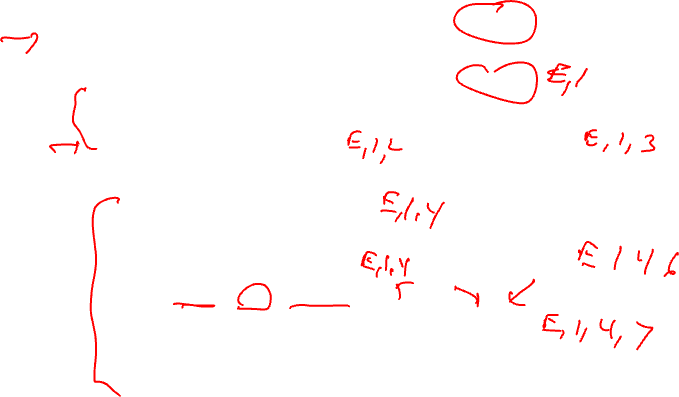 E, 1
E, 1, 2
E, 1, 3
E, 1, 4
E, 1, 4
5
E 1 4 6
E, 1, 4, 7